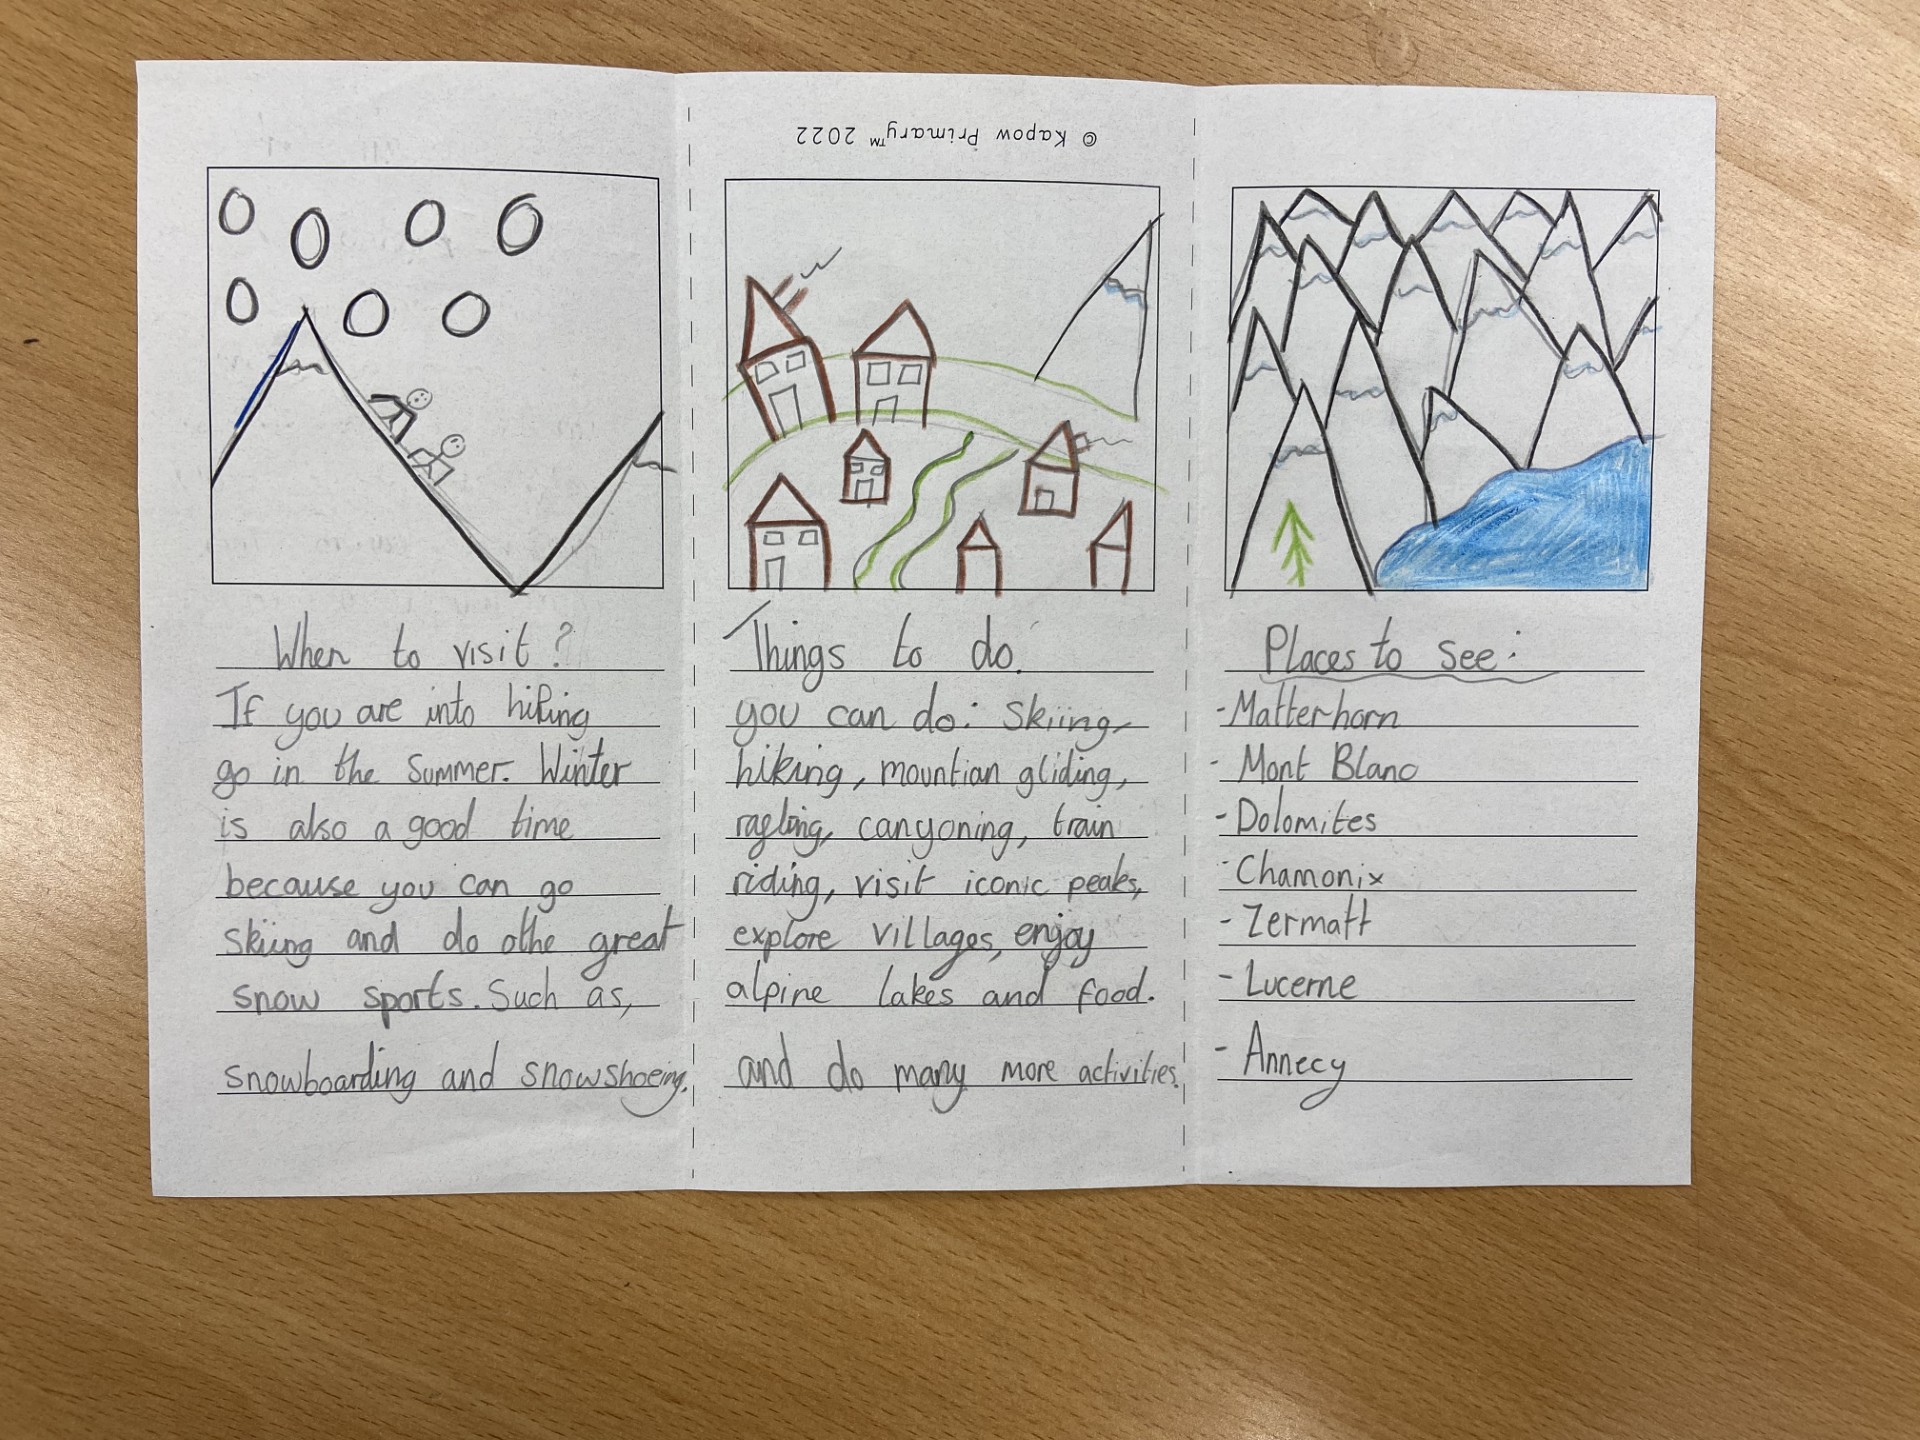 © Kapow Primary™ 2022
When to visit?
If you are into hiking
go in the Summer. Winter
is also a good time
because you can go
skiing and do othe great
snow sports. Such as,
snowboarding and snowshoeing.
Things to do.
you can do: Skiing,
hiking, mountian gliding,
canyoning, train
riding, visit iconic peaks,
explore villages, enjoy
alpine lakes and food.
and do many more activities.
Places to see:
- Matterhorn
- Mont Blanc
- Dolomites
- Chamonix
- Zermatt
- Lucerne
- Annecy